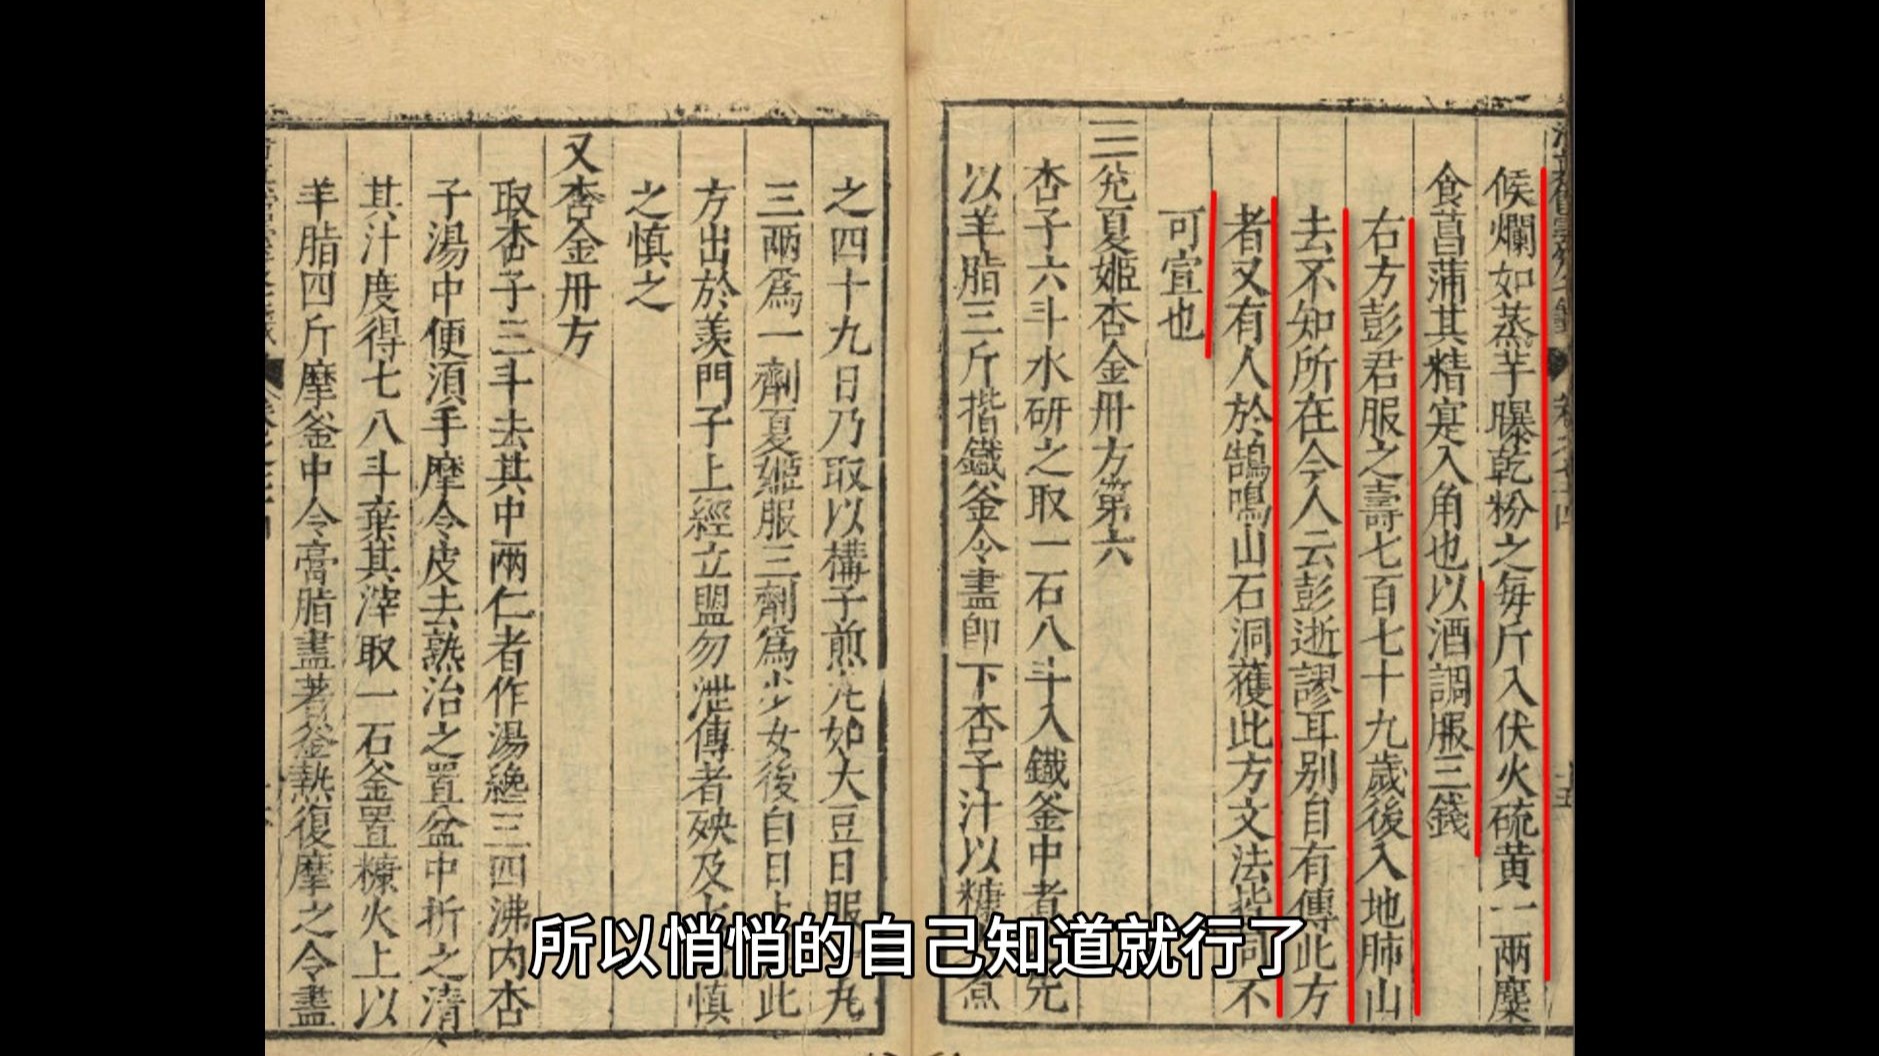 候爛如蒸芋曝乾粉之每斤入伏火硫黄一兩麋
食菖蒲其精寔入角也以酒調服三錢
右方彭君服之壽七百七十九歲後入地肺山
去不知所在今人云彭逝謬耳别自有傳此方
者又有人於鵠鳴山石洞獲此方文法皆同不
可宣也
三茒夏姬杏金丹方第六
杏子六斗水研之取一石八斗入鐵釜中煮 先
以羊脂三斤揩鐵釜令盡即下杏子汁以糠 煮
之四十九日乃取以構子煎丸如大豆日服 丸
三兩爲一劑夏姬服三劑爲少女後白日上 此
方出於羨門子上經立盟勿泄傳者殃及 慎
之慎之
又杏金丹方
取杏子三斗去其中兩仁者作湯纔三四沸内杏
子湯中便須手摩令皮去熟治之置盆中折之清
其汁度得七八斗棄其滓取一石釜置糠火上以
羊脂四斤摩釜中令膏脂盡著釜熱復摩之令盡
所以悄悄的自己知道就行了